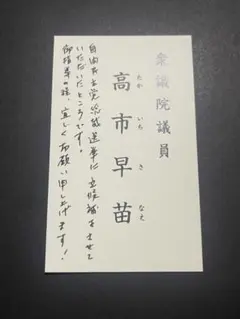 衆議院議員
高市早苗
たか いち さ なえ
自由民主党総裁選挙に立候補させて
いただいたところです。
御指導の程、宜しくお願い申し上げます!